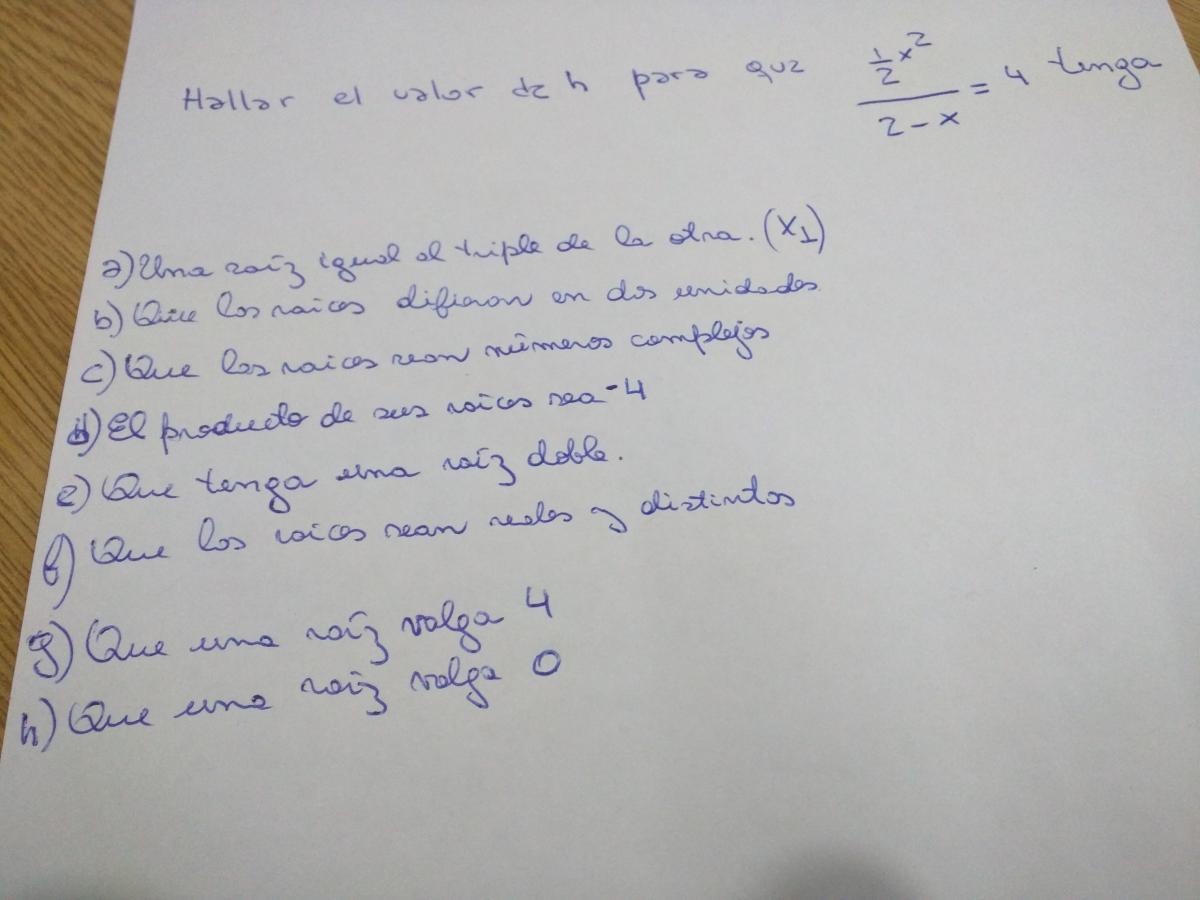 Hallar el valor de h para que \frac{\frac{1}{2}x^2}{2-x} = 4 tenga
a) Una raíz igual al triple de la otra. (X1)
b) Que las raices difieran en dos unidades
c) Que las raices sean números complejos
d) El producto de sus raices sea -4
e) Que tenga una raíz doble.
f) Que las raices sean reales y distintos
g) Que una raíz valga 4
h) Que una raíz valga 0